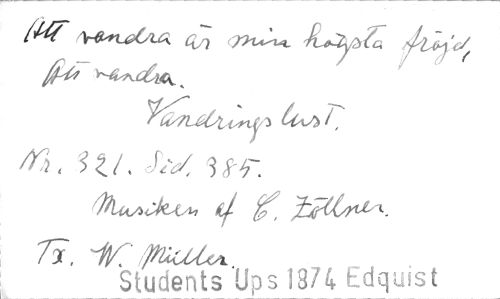 Att vandra är min högsta fröjd,
Att vandra.
Vandringslust.
Nr. 321. Sid. 385.
Musiken af C. Zöllner.
Tx. W. Müller.
Students Ups 1874 Edquist